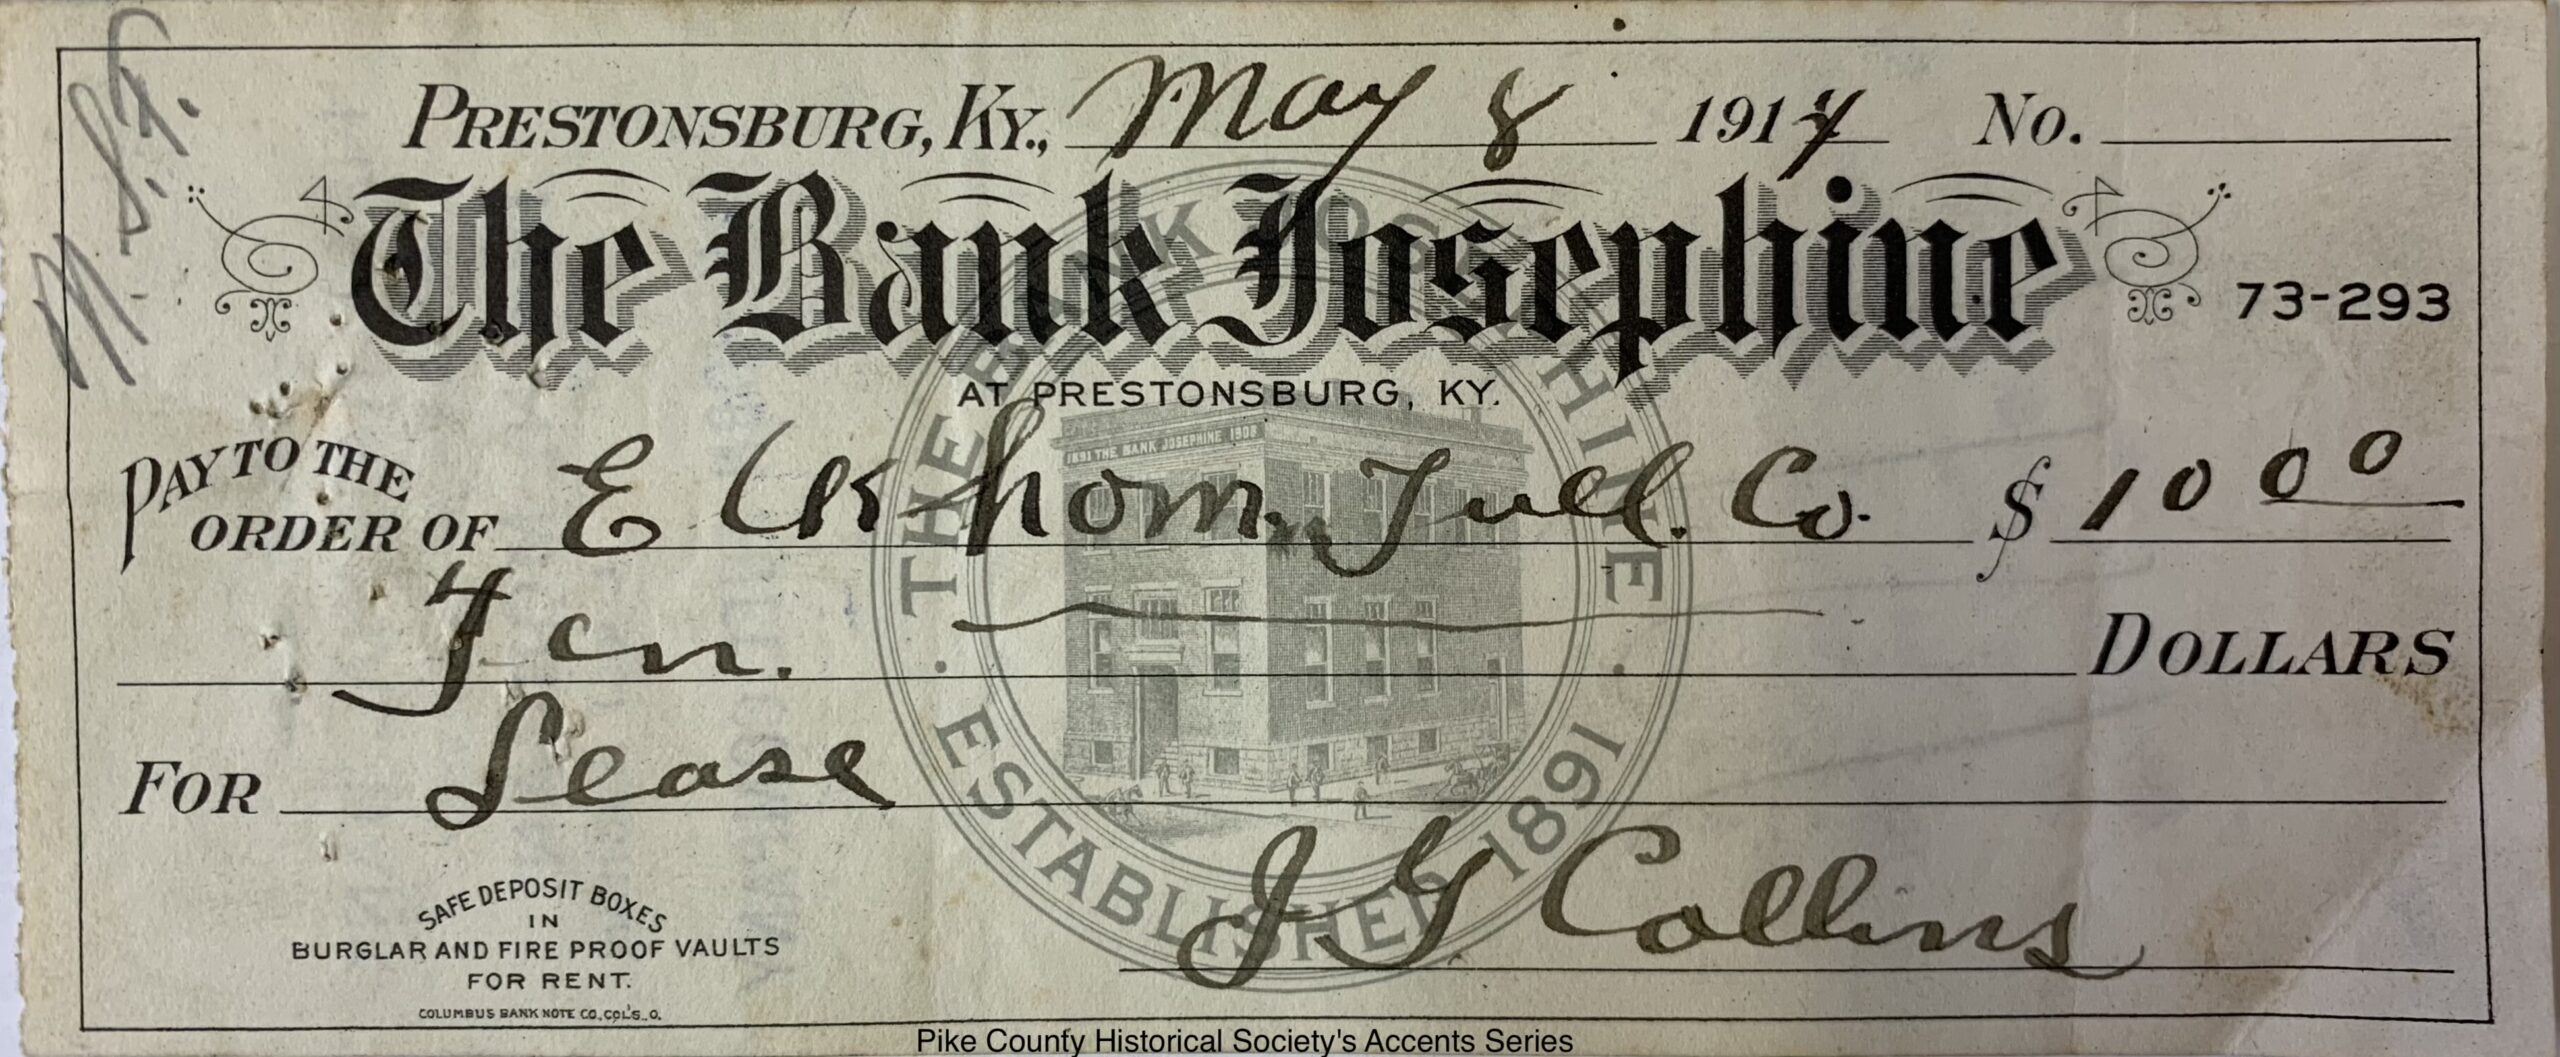 M. S. F.
PRESTONSBURG, KY., May 8 1914 No.
The Bank Josephine
73-293
AT PRESTONSBURG, KY.
PAY TO THE ORDER OF Elkhorn Fuel. Co. $ 10 00
Ten. DOLLARS
FOR Lease
J G Collins
THE BANK JOSEPHINE
· ESTABLISHED 1891 ·
1891 THE BANK JOSEPHINE 1908
SAFE DEPOSIT BOXES
IN
BURGLAR AND FIRE PROOF VAULTS
FOR RENT.
COLUMBUS BANK NOTE CO., COL'S., O.
Pike County Historical Society's Accents Series